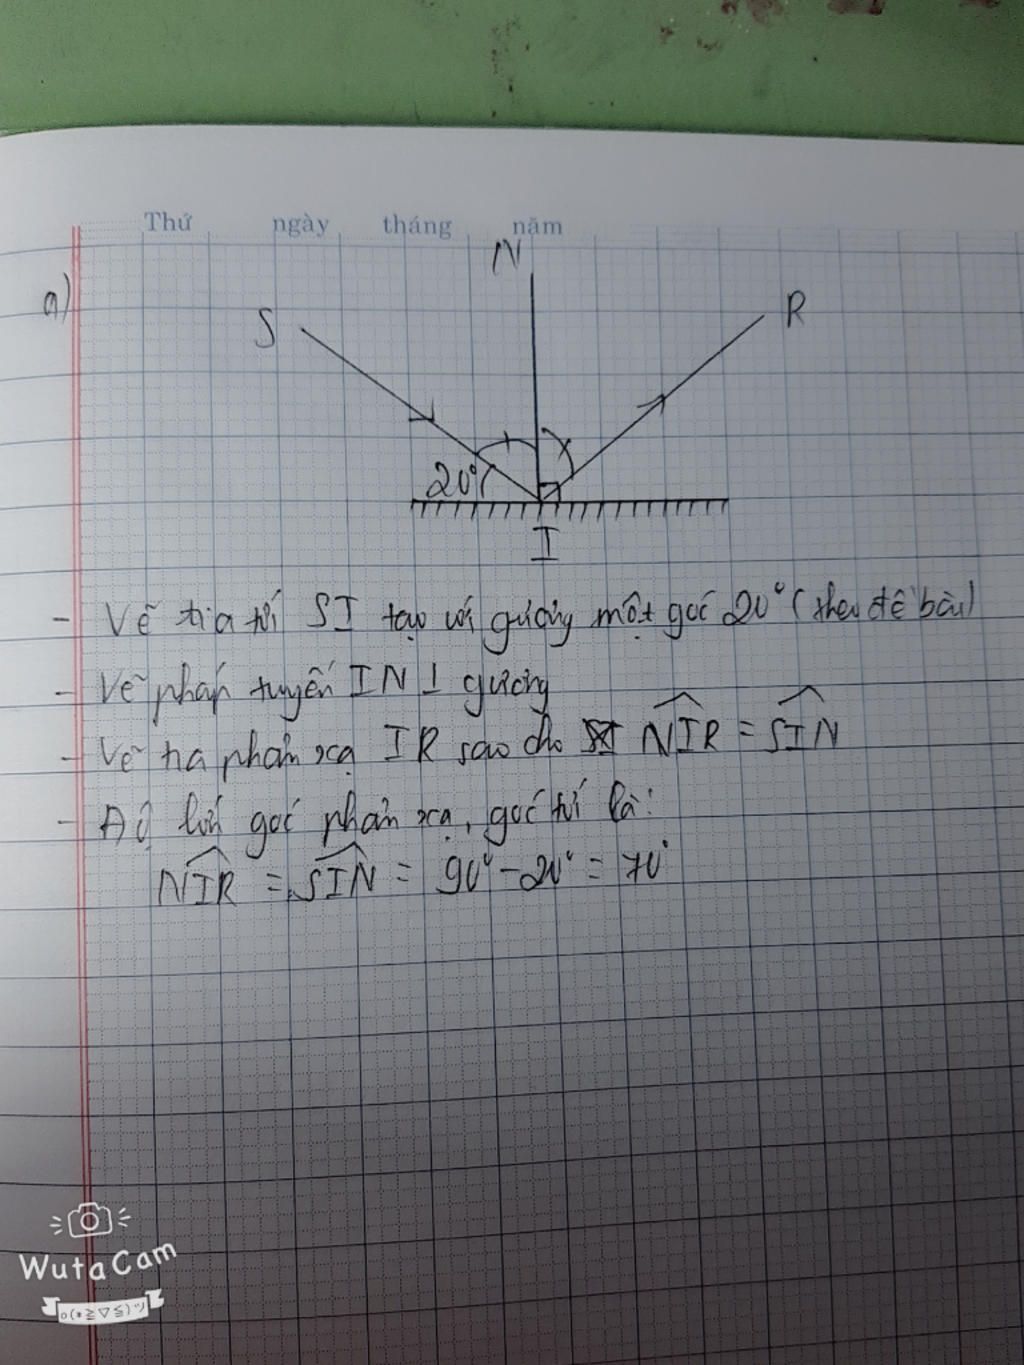 Thứ ngày tháng năm
a)
N
S
R
20°
I
- Vẽ tia tới SI tạo với gương một góc 20° (theo đề bài)
- Vẽ pháp tuyến IN ⊥ gương
- Vẽ tia phản xạ IR sao cho NIR = SIN
- Độ lớn góc phản xạ, góc tới là:
NIR = SIN = 90° - 20° = 70°
WutaCam
o(*≧▽≦)ツ